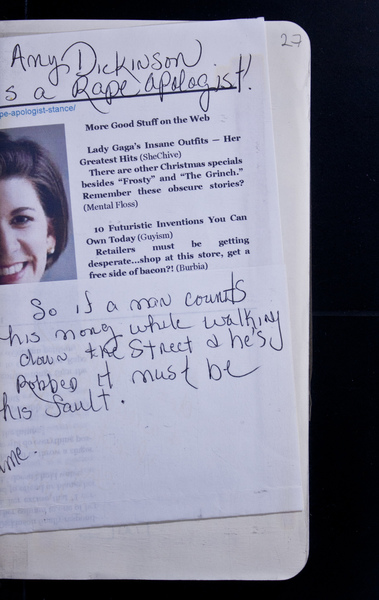 27
Amy Dickinson
s a Rape Apologist!
pe-apologist-stance/
More Good Stuff on the Web
Lady Gaga's Insane Outfits — Her
Greatest Hits (SheChive)
There are other Christmas specials
besides "Frosty" and "The Grinch."
Remember these obscure stories?
(Mental Floss)
10 Futuristic Inventions You Can
Own Today (Guyism)
Retailers must be getting
desperate...shop at this store, get a
free side of bacon?! (Burbia)
So if a man counts
his money while walking
down the Street & he's
robbed it must be
his fault.
me.